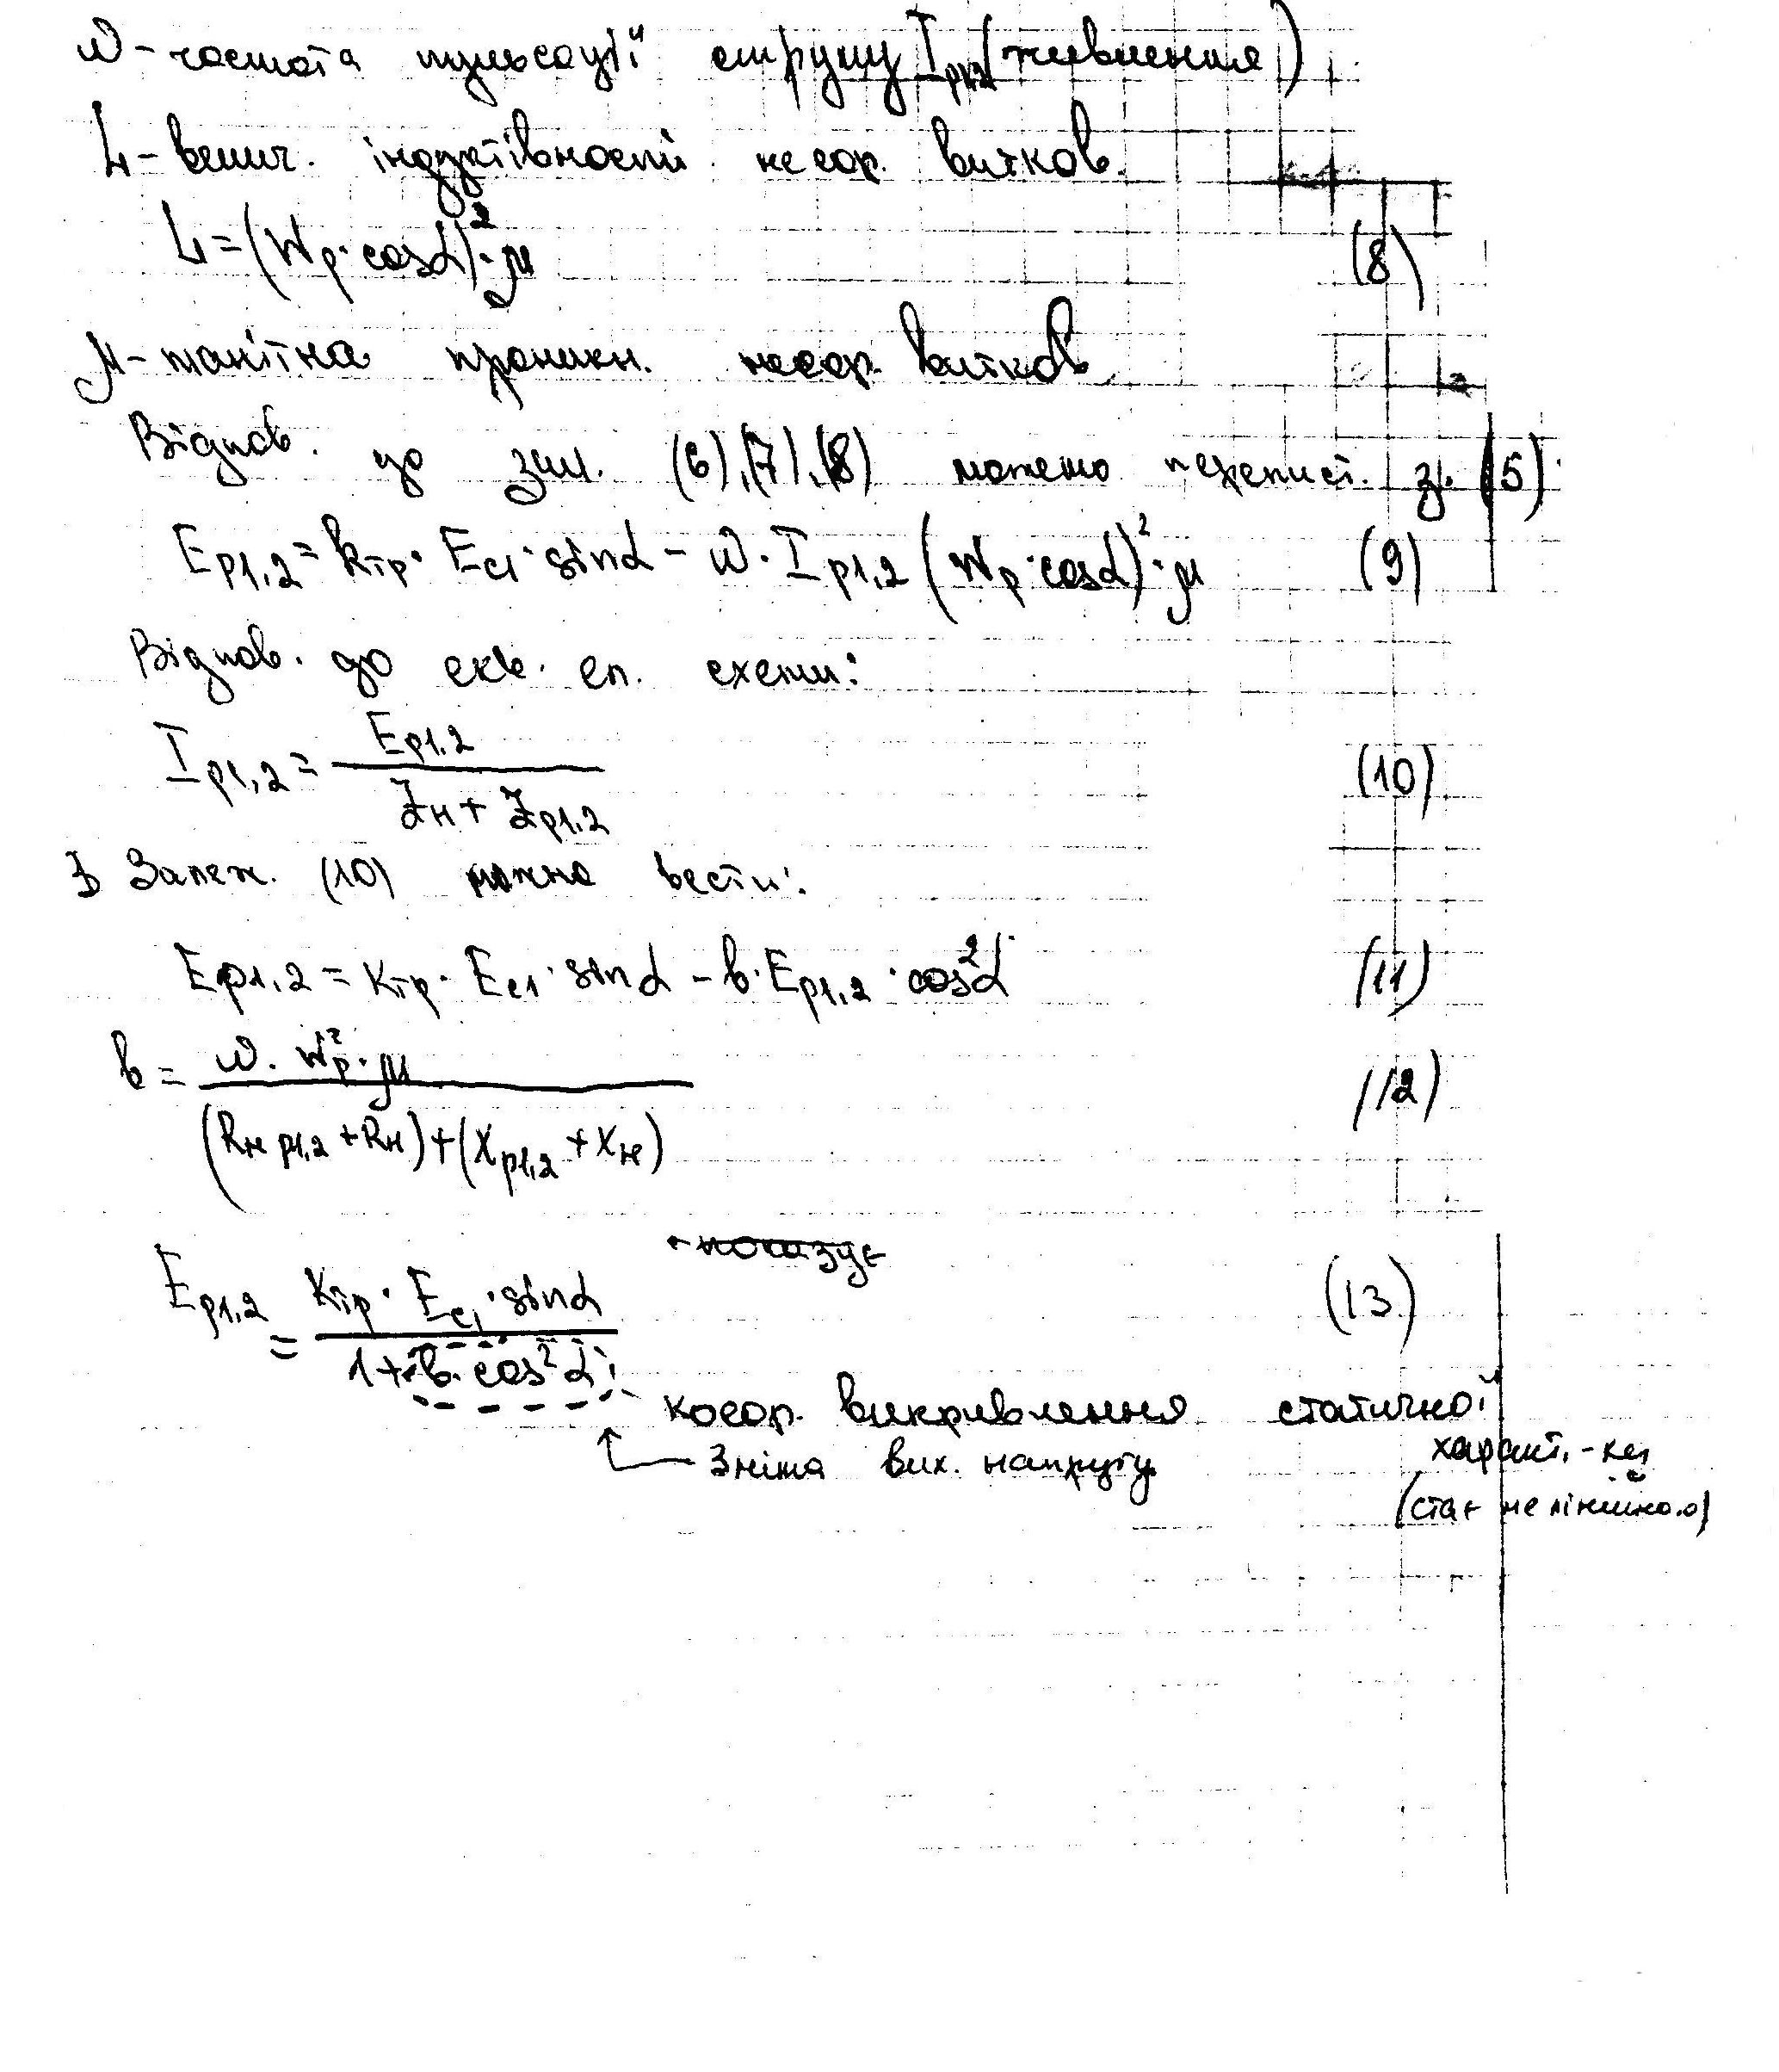 ω - частота пульсації струму I р1,2 (живлення)
L - велич. індуктівності несор. витков.
L = (Wр · cosα)² · μ (8)
μ - магнітна проникн. несор. витков
Відпов. до зал. (6), (7), (8) можемо перепист. з. (5)
Eр1,2 = kтр · Ec1 · sinα - ω · Iр1,2 (Wр · cosα)² · μ (9)
Відпов. до екв. ел. схеми:
Iр1,2 = Eр1,2 / (Zн + Zр1,2) (10)
З Залеж. (10) можна вести:
Eр1,2 = kтр · Ec1 · sinα - b · Eр1,2 · cos²α (11)
b = ω · Wр² · μ / ((Rн р1,2 + Rн) + (Xр1,2 + Xн)) (12)
показує
Eр1,2 = kтр · Ec1 · sinα / (1 + b · cos²α) (13)
викривлення статичної
Зніма вих. напругу
характ.-ки
(стає не лінійною)